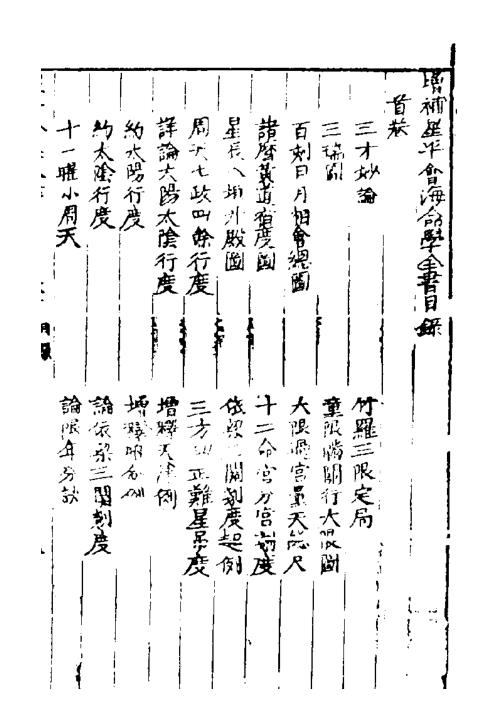 增補星平會海命學全書目錄
首卷
三才妙論
竹羅三限定局
三瑞圖
童限備關行大限圖
百刻日月相會總圖
大限過宮量天總尺
諸曆黃道宿度圖
十二命宮分宮刻度
星辰入垣升殿圖
依 關刻度起例
周天七政四餘行度
三方 正難星吊度
詳論太陽太陰行度
增釋天 例
約太陽行度
增釋 例
約太陰行度
論依 三關刻度
十一曜小周天
論限年分訣
目錄